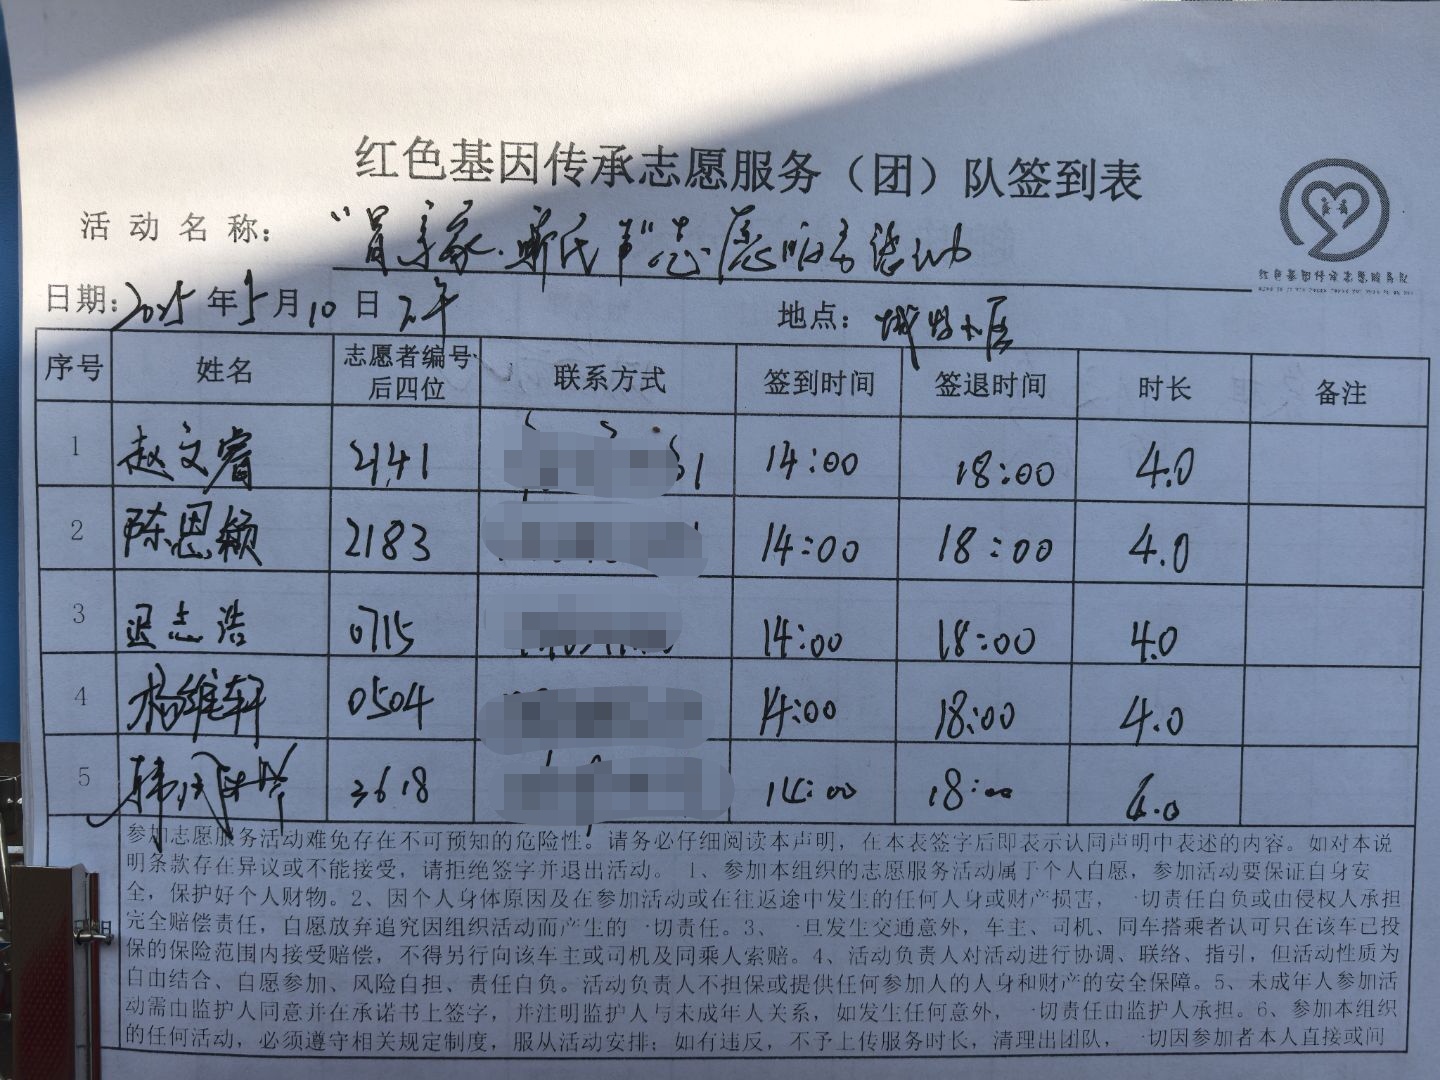 红色基因传承志愿服务（团）队签到表
活动名称： 志愿服务活动
红色基因传承志愿服务队
日期：2025年5月10日 地点：
序号 姓名 志愿者编号后四位 联系方式 签到时间 签退时间 时长 备注
1 赵文睿 2141 14:00 18:00 4.0
2 陈思颖 2183 14:00 18:00 4.0
3 迟志浩 0715 14:00 18:00 4.0
4 杨维轩 0504 14:00 18:00 4.0
5 韩 3618 14:00 18:00 4.0
参加志愿服务活动难免存在不可预知的危险性。请务必仔细阅读本声明，在本表签字后即表示认同声明中表述的内容。如对本说
明条款存在异议或不能接受，请拒绝签字并退出活动。 1、参加本组织的志愿服务活动属于个人自愿，参加活动要保证自身安
全，保护好个人财物。2、因个人身体原因及在参加活动或在往返途中发生的任何人身或财产损害，一切责任自负或由侵权人承担
完全赔偿责任，自愿放弃追究因组织活动而产生的一切责任。3、一旦发生交通意外，车主、司机、同车搭乘者认可只在该车已投
保的保险范围内接受赔偿，不得另行向该车主或司机及同乘人索赔。4、活动负责人对活动进行协调、联络、指引，但活动性质为
自由结合、自愿参加、风险自担、责任自负。活动负责人不担保或提供任何参加人的人身和财产的安全保障。5、未成年人参加活
动需由监护人同意并在承诺书上签字，并注明监护人与未成年人关系，如发生任何意外，一切责任由监护人承担。6、参加本组织
的任何活动，必须遵守相关规定制度，服从活动安排；如有违反，不予上传服务时长，清理出团队，一切因参加者本人直接或间